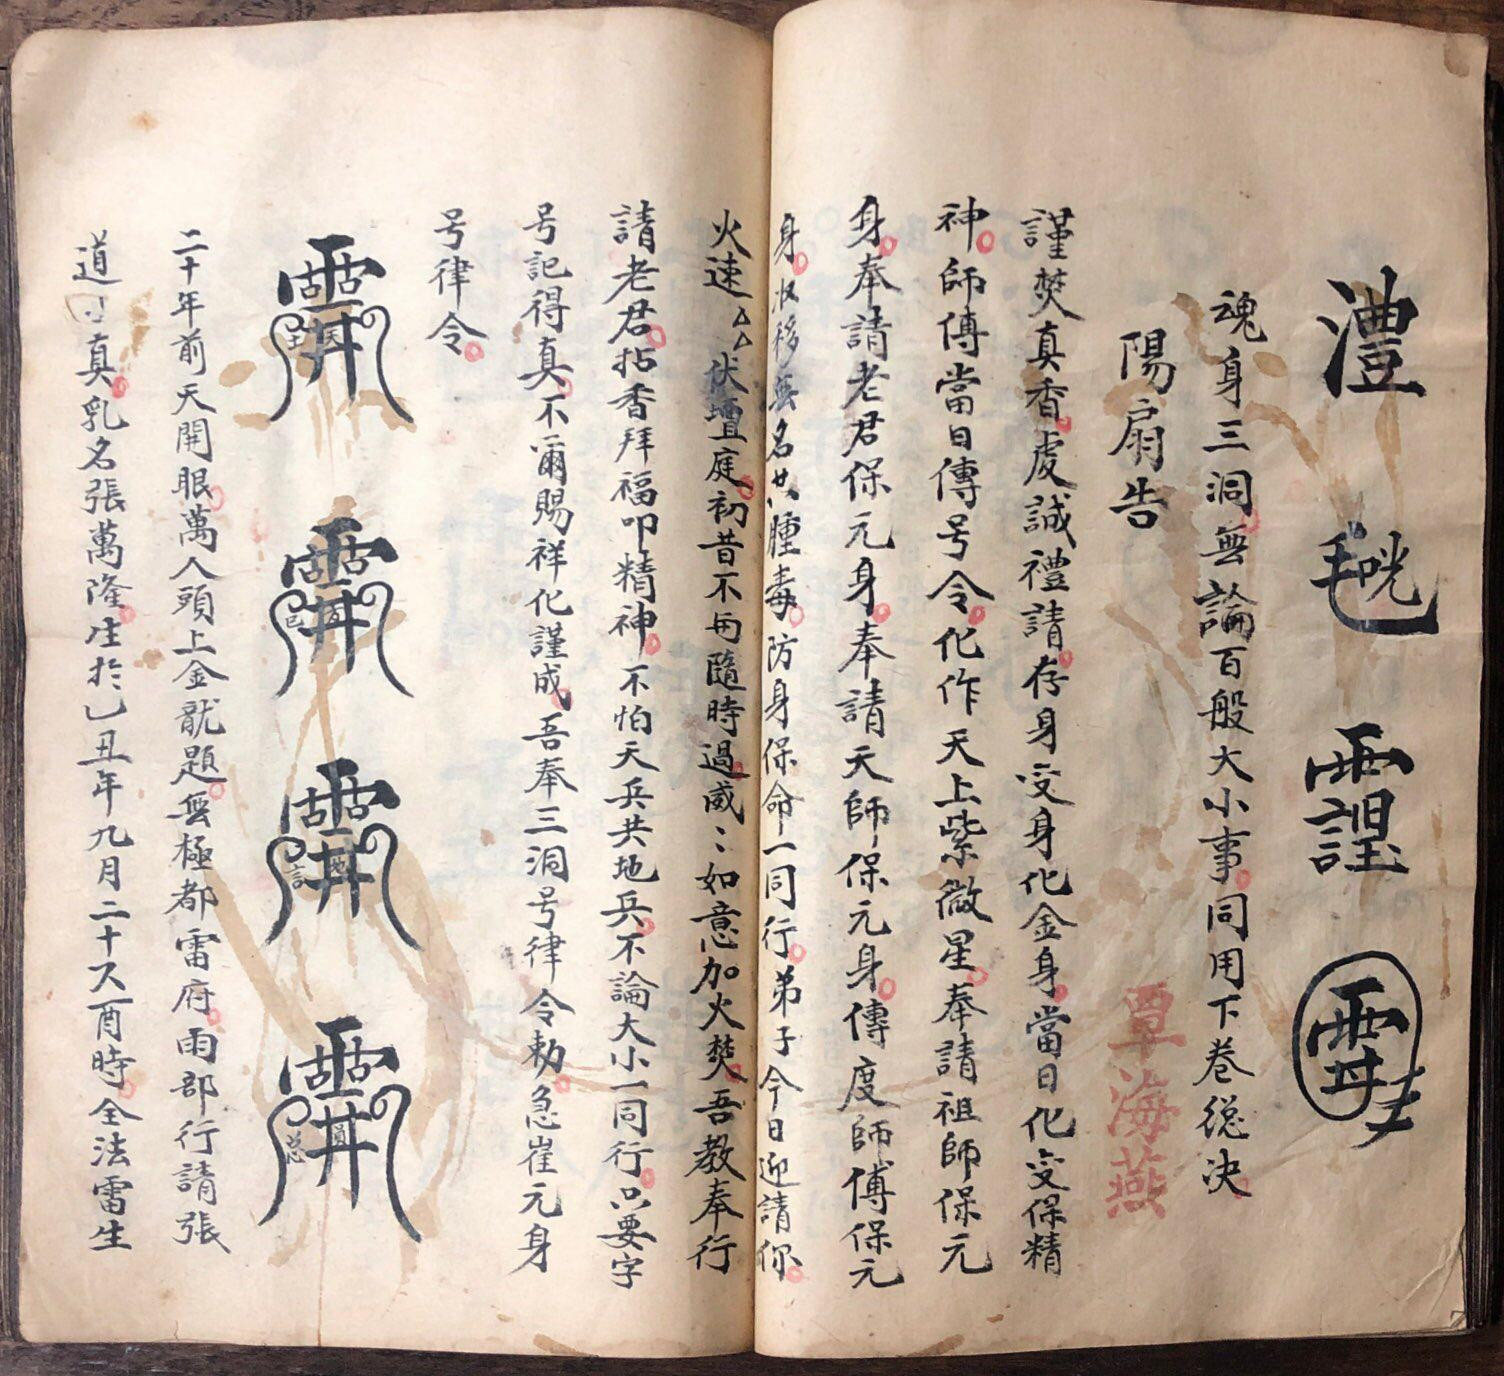 澧
魂身三洞無論百般大小事同用下卷總决
陽扇告
覃海燕
謹焚真香虔誠禮請存身变身化金身當日化变保精
神師傅當日傳号令化作天上紫微星奉請祖師保元
身奉請老君保元身奉請天師保元身傳度師傅保元
身收移無名共腫毒防身保命一同行弟子今日迎請你
火速伏壇庭初昔不与隨時過威如意加火焚吾教奉行
請老君拈香拜福叩精神不怕天兵共地兵不論大小一同行只要字
号記得真不爾賜祥化謹成吾奉三洞号律令勅急崔元身
号律令
二十年前天開眼萬人頭上金龍題無極都雷府雨部行請張
道真乳名張萬隆生於乙丑年九月二十酉時全法雷生